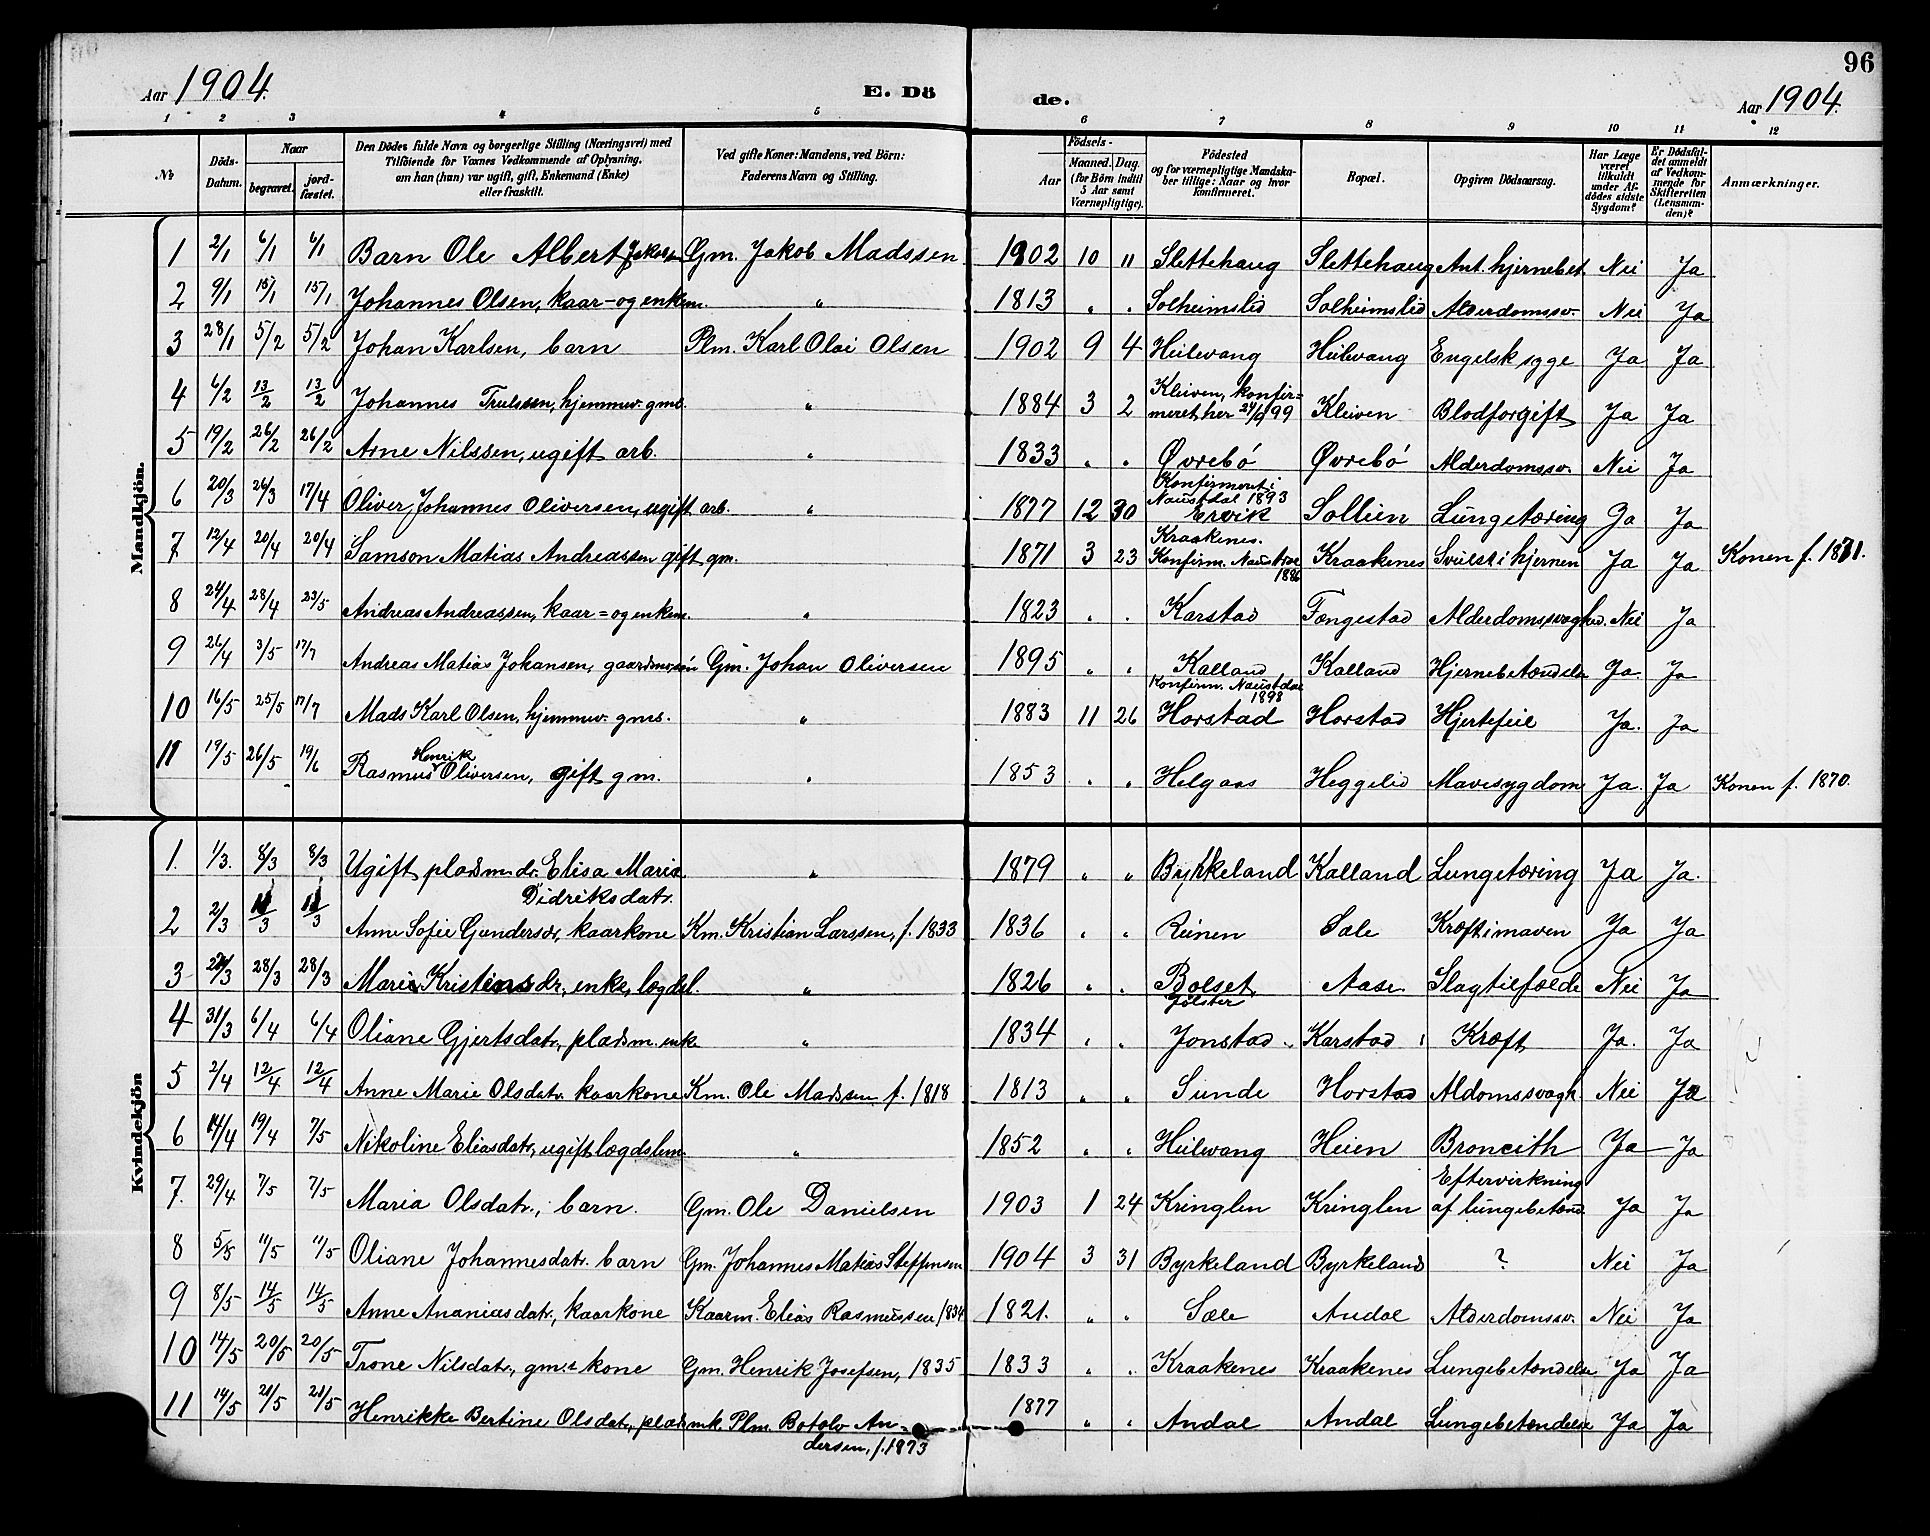 96
Aar 1904.
E. Dö
de.
Aar 1904.
1 2 3 4 5 6 7 8 9 10 11 12
No
Döds-Datum.
Naar
begravet.
jord-fæstet.
Den Dödes fulde Navn og borgerlige Stilling (Næringsvei) med
Tilföiende for Voxnes Vedkommende af Oplysning,
om han (hun) var ugift, gift, Enkemand (Enke)
eller fraskilt.
Ved gifte Koner: Mandens, ved Börn:
Faderens Navn og Stilling.
Födsels-
Aar
Maaned. Dag.
(for Börn indtil
5 Aar samt
Værnepligtige).
Födested
og for værnepligtige Mandska-
ber tillige: Naar og hvor
konfirmeret.
Bopæl.
Opgiven Dödsaarsag.
Har Læge
været
tilkaldt
under Af-
dödes sidste
Sygdom?
Er Dödsfal-
det anmeldt
af Vedkom-
mende for
Skifteretten
(Lensman-
den)?
Anmærkninger.
Mandkjön.
1 2/1 6/1 6/1 Barn Ole Albert Jakobs. Gm. Jakob Madssen 1902 10 11 Slettehaug Slettehaug Ant. hjernebet Nei Ja
2 9/1 15/1 15/1 Johannes Olsen, kaar- og enkem. " 1813 " " Solheimslid Solheimslid Alderdomssv. Nei Ja
3 28/1 5/2 5/2 Johan Karlsen, barn Plm. Karl Olai Olsen 1902 9 4 Heilevang Heilevang Engelsk syge Ja Ja
4 6/2 13/2 13/2 Johannes Trulssen, hjemmev. gms. " 1884 3 2 Kleiven, konfir=
meret her 24/9 99 Kleiven Blodforgift Ja Ja
5 19/2 26/2 26/2 Arne Nilssen, ugift arb. " 1833 " " Øvrebó Øvrebó Alderdomssv. Nei Ja
6 20/3 26/3 17/4 Oliver Johannes Oliversen, ugift arb. " 1877 12 30 Konfirment i
Naustdal 1893
Ervik Sollien Lungetæring Ja Ja
7 12/4 20/4 20/4 Samson Matias Andreassen gift gm. 1871 3 23 Kraakenes.
Konfirm. Naustdal
1886 Kraakenes Svulst i hjernen Ja Ja Konen f. 1871.
8 24/4 28/4 23/5 Andreas Andreassen, kaar= og enkem. " 1823 " " Karstad Fængestad Alderdomssvaghed. Nei Ja
9 26/4 3/5 17/7 Andreas Matias Johansen, gaardm. sön Gm. Johan Oliversen 1895 " " Kalland Kalland Hjernebetændelse Ja Ja
10 16/5 25/5 17/7 Mads Karl Olsen, hjemmev. gms. " 1883 11 26 Konfirm. Naustdal
1898
Horstad Horstad Hjertefeil Ja. Ja
11 19/5 26/5 19/6 Rasmus Henrik Oliversen, gift gm. " 1853 " " Helgaas Heggelid Mavesygdom Ja. Ja Konen f. 1870.
Kvindekjön
1. 1/3. 8/3 8/3 Ugift pladsm. dr. Elisa Maria
Didriksdatr. " 1879 " " Byrkeland Kalland Lungetæring Ja Ja.
2 2/3 11/3 11/3 Anne Sofie Gundersdr, kaarkone Km. Kristian Larssen, f. 1833 1836 " " Reinen Sæle Kræft i maven Ja Ja
3 28/3 28/3 Marie Kristensdr, enke, lægdsl. " 1826 " " Bolset
Jölster Aase Slagtilfælde Nei Ja
4 31/3 6/4 6/4 Oliane Gjertsdatr, pladsm. enke " 1834 " " Jonstad Karstad Kræft Ja. Ja
5 2/4 12/4 12/4 Anne Marie Olsdatr. kaarkone Km. Ole Madssen f. 1818 1813 " " Sunde Horstad Aldomssvagh. Nei Ja
6 14/4 19/4 7/5 Nikoline Eliasdatr, ugift lægdslem. " 1852 " " Heilevang Heien Broncith Ja Ja
7. 29/4 7/5 7/5 Maria Olsdatr., barn. Gm. Ole Danielsen 1903 1 24 Kringlen Kringlen Eftervirkning
af lungebetænd. Ja Ja
8 5/5 11/5 11/5 Oliane Johannesdatr. barn Gm. Johannes Matias Steffensen 1904 3 31 Byrkeland Byrkeland ? Nei Ja
9 8/5 14/5 14/5 Anne Ananiasdatr, kaarkone Kaarm. Elias Rasmussen 1834 1821. " " Sæle Andal Alderdomssv. Nei Ja
10 14/5 20/5 20/5 Trone Nilsdatr, gm.s kone Gm. Henrik Josefsen, 1835 1833 " " Kraakenes Kraakenes Lungebetændelse Ja Ja
11 14/5 21/5 21/5 Henrikke Bertine Olsdatr, pladsmk. Plm. Botolv An=
dersen, f. 1873 1877 " " Andal Andal Lungebetændelse Ja Ja